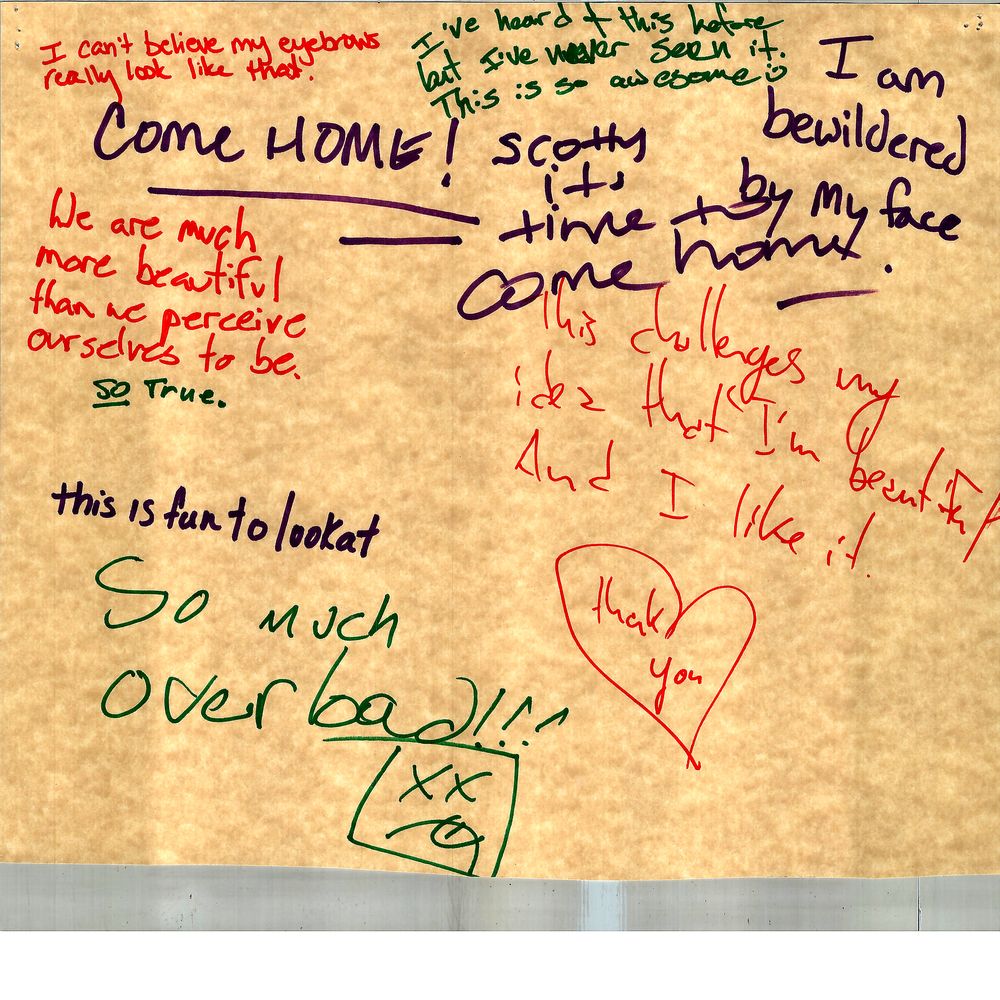 I can't believe my eyebrows
really look like that.
I've heard of this before
but I've never seen it.
This is so awesome
I am
bewildered
by my face
Come HOME!
scotty
its
time to
come home.
We are much
more beautiful
than we perceive
ourselves to be.
so True.
This challenges my
idea that "I'm beautiful
And I like it.
this is fun to look at
So much
over bad!!!
thak
you
XX